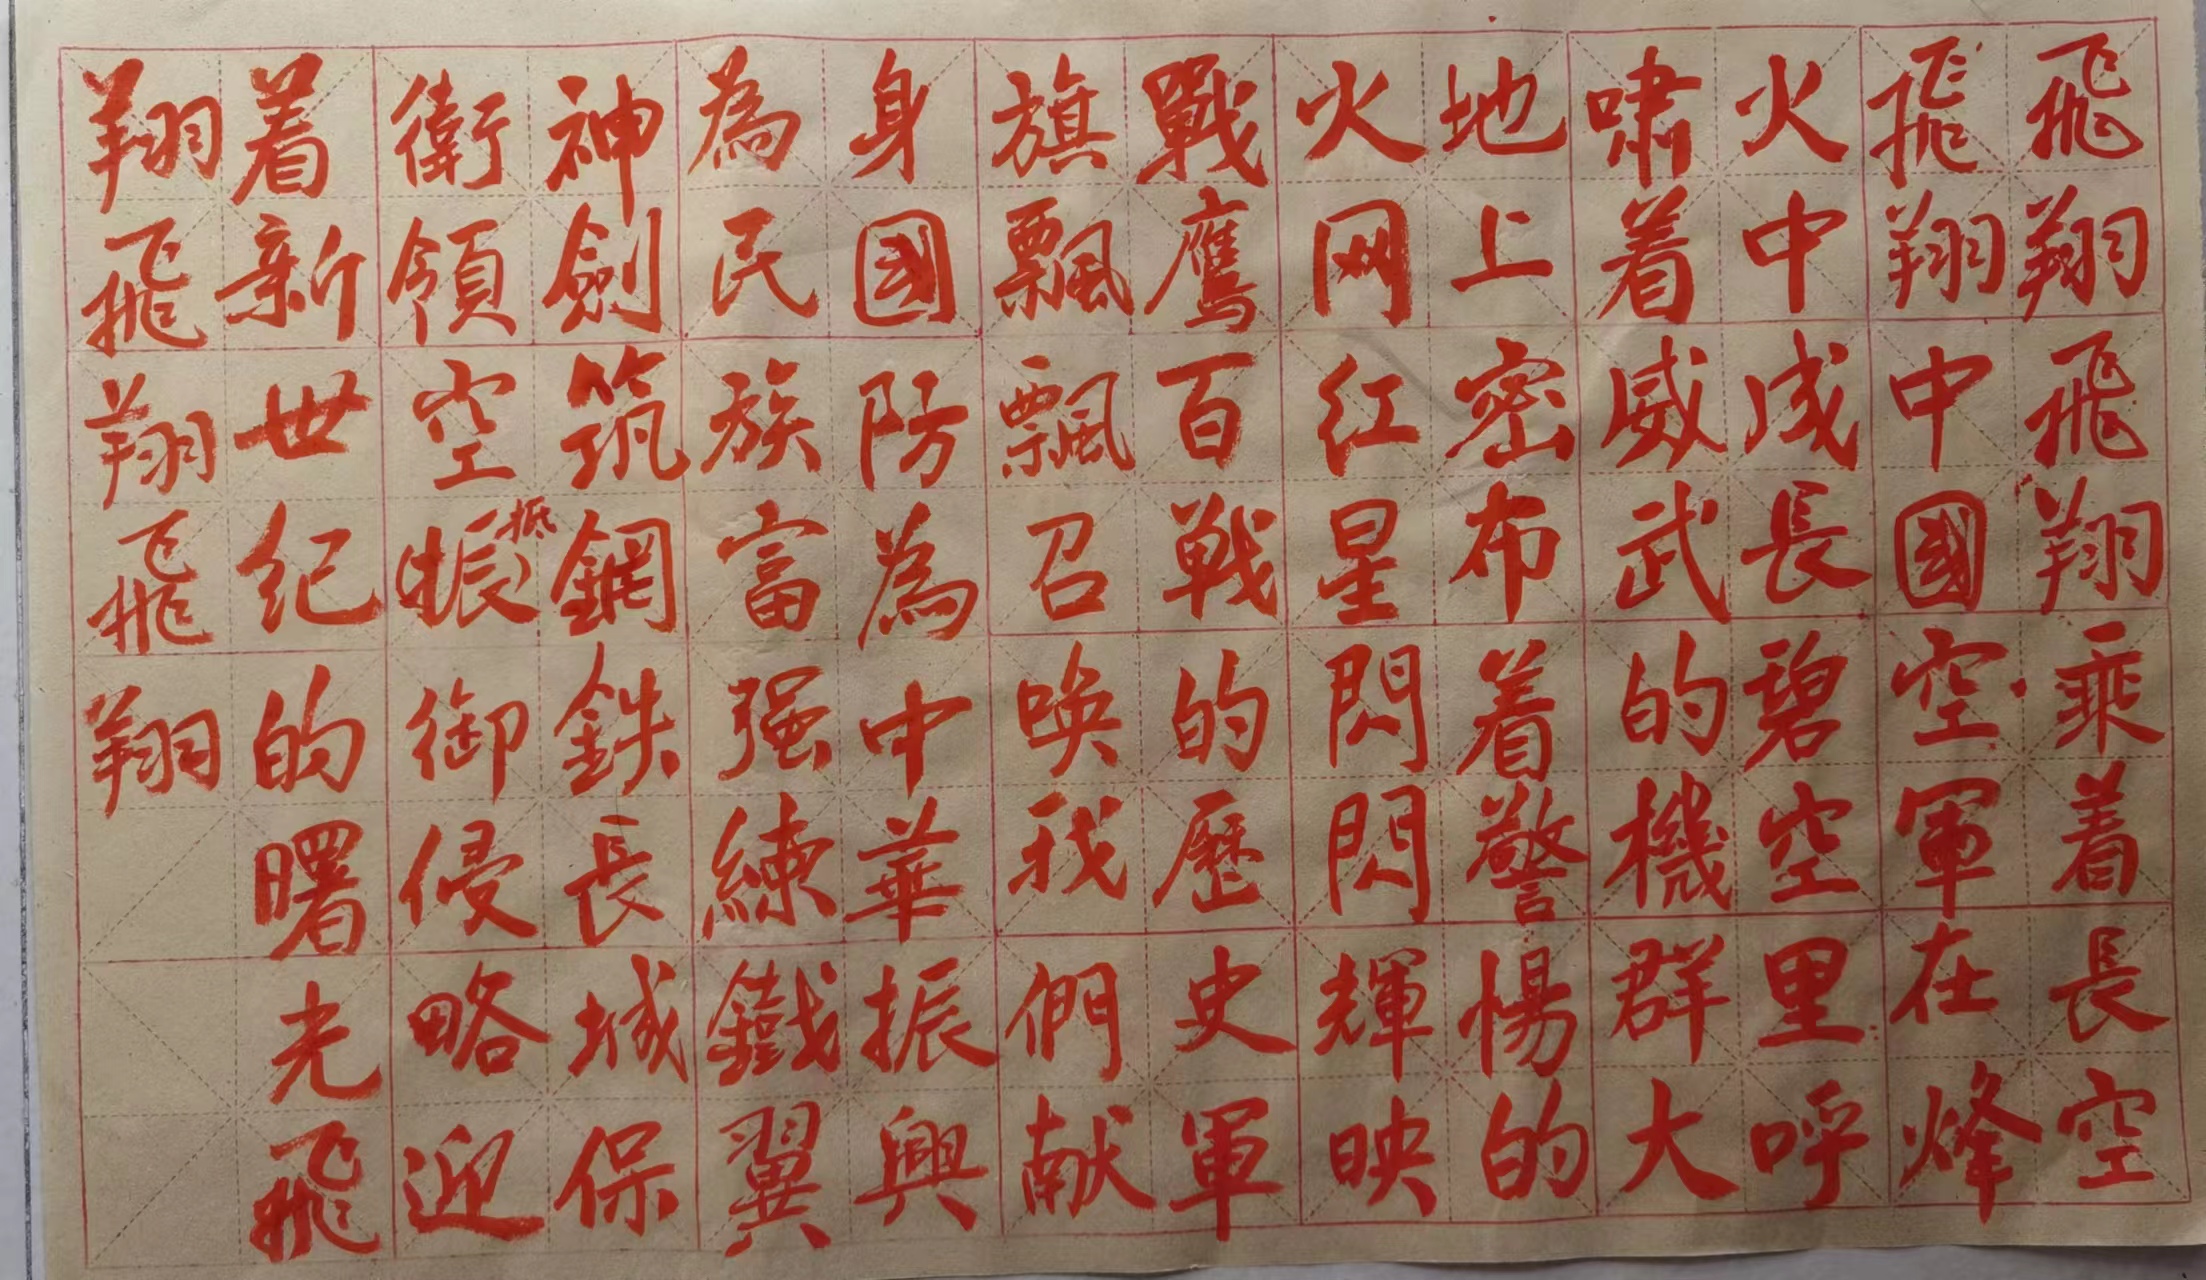 飛翔飛翔乘着長空
飛翔中國空軍在烽
火中成長碧空里呼
啸着威武的機群大
地上密布着警惕的
火网红星閃閃輝映
戰鹰百戦的歷史軍
旗飄飄召唤我們献
身國防為中華振興
為民族富强練鐵翼
神劍筑鋼鉄長城保
衛領空(振)抵御侵略迎
着新世纪的曙光飛
翔飛翔飛翔